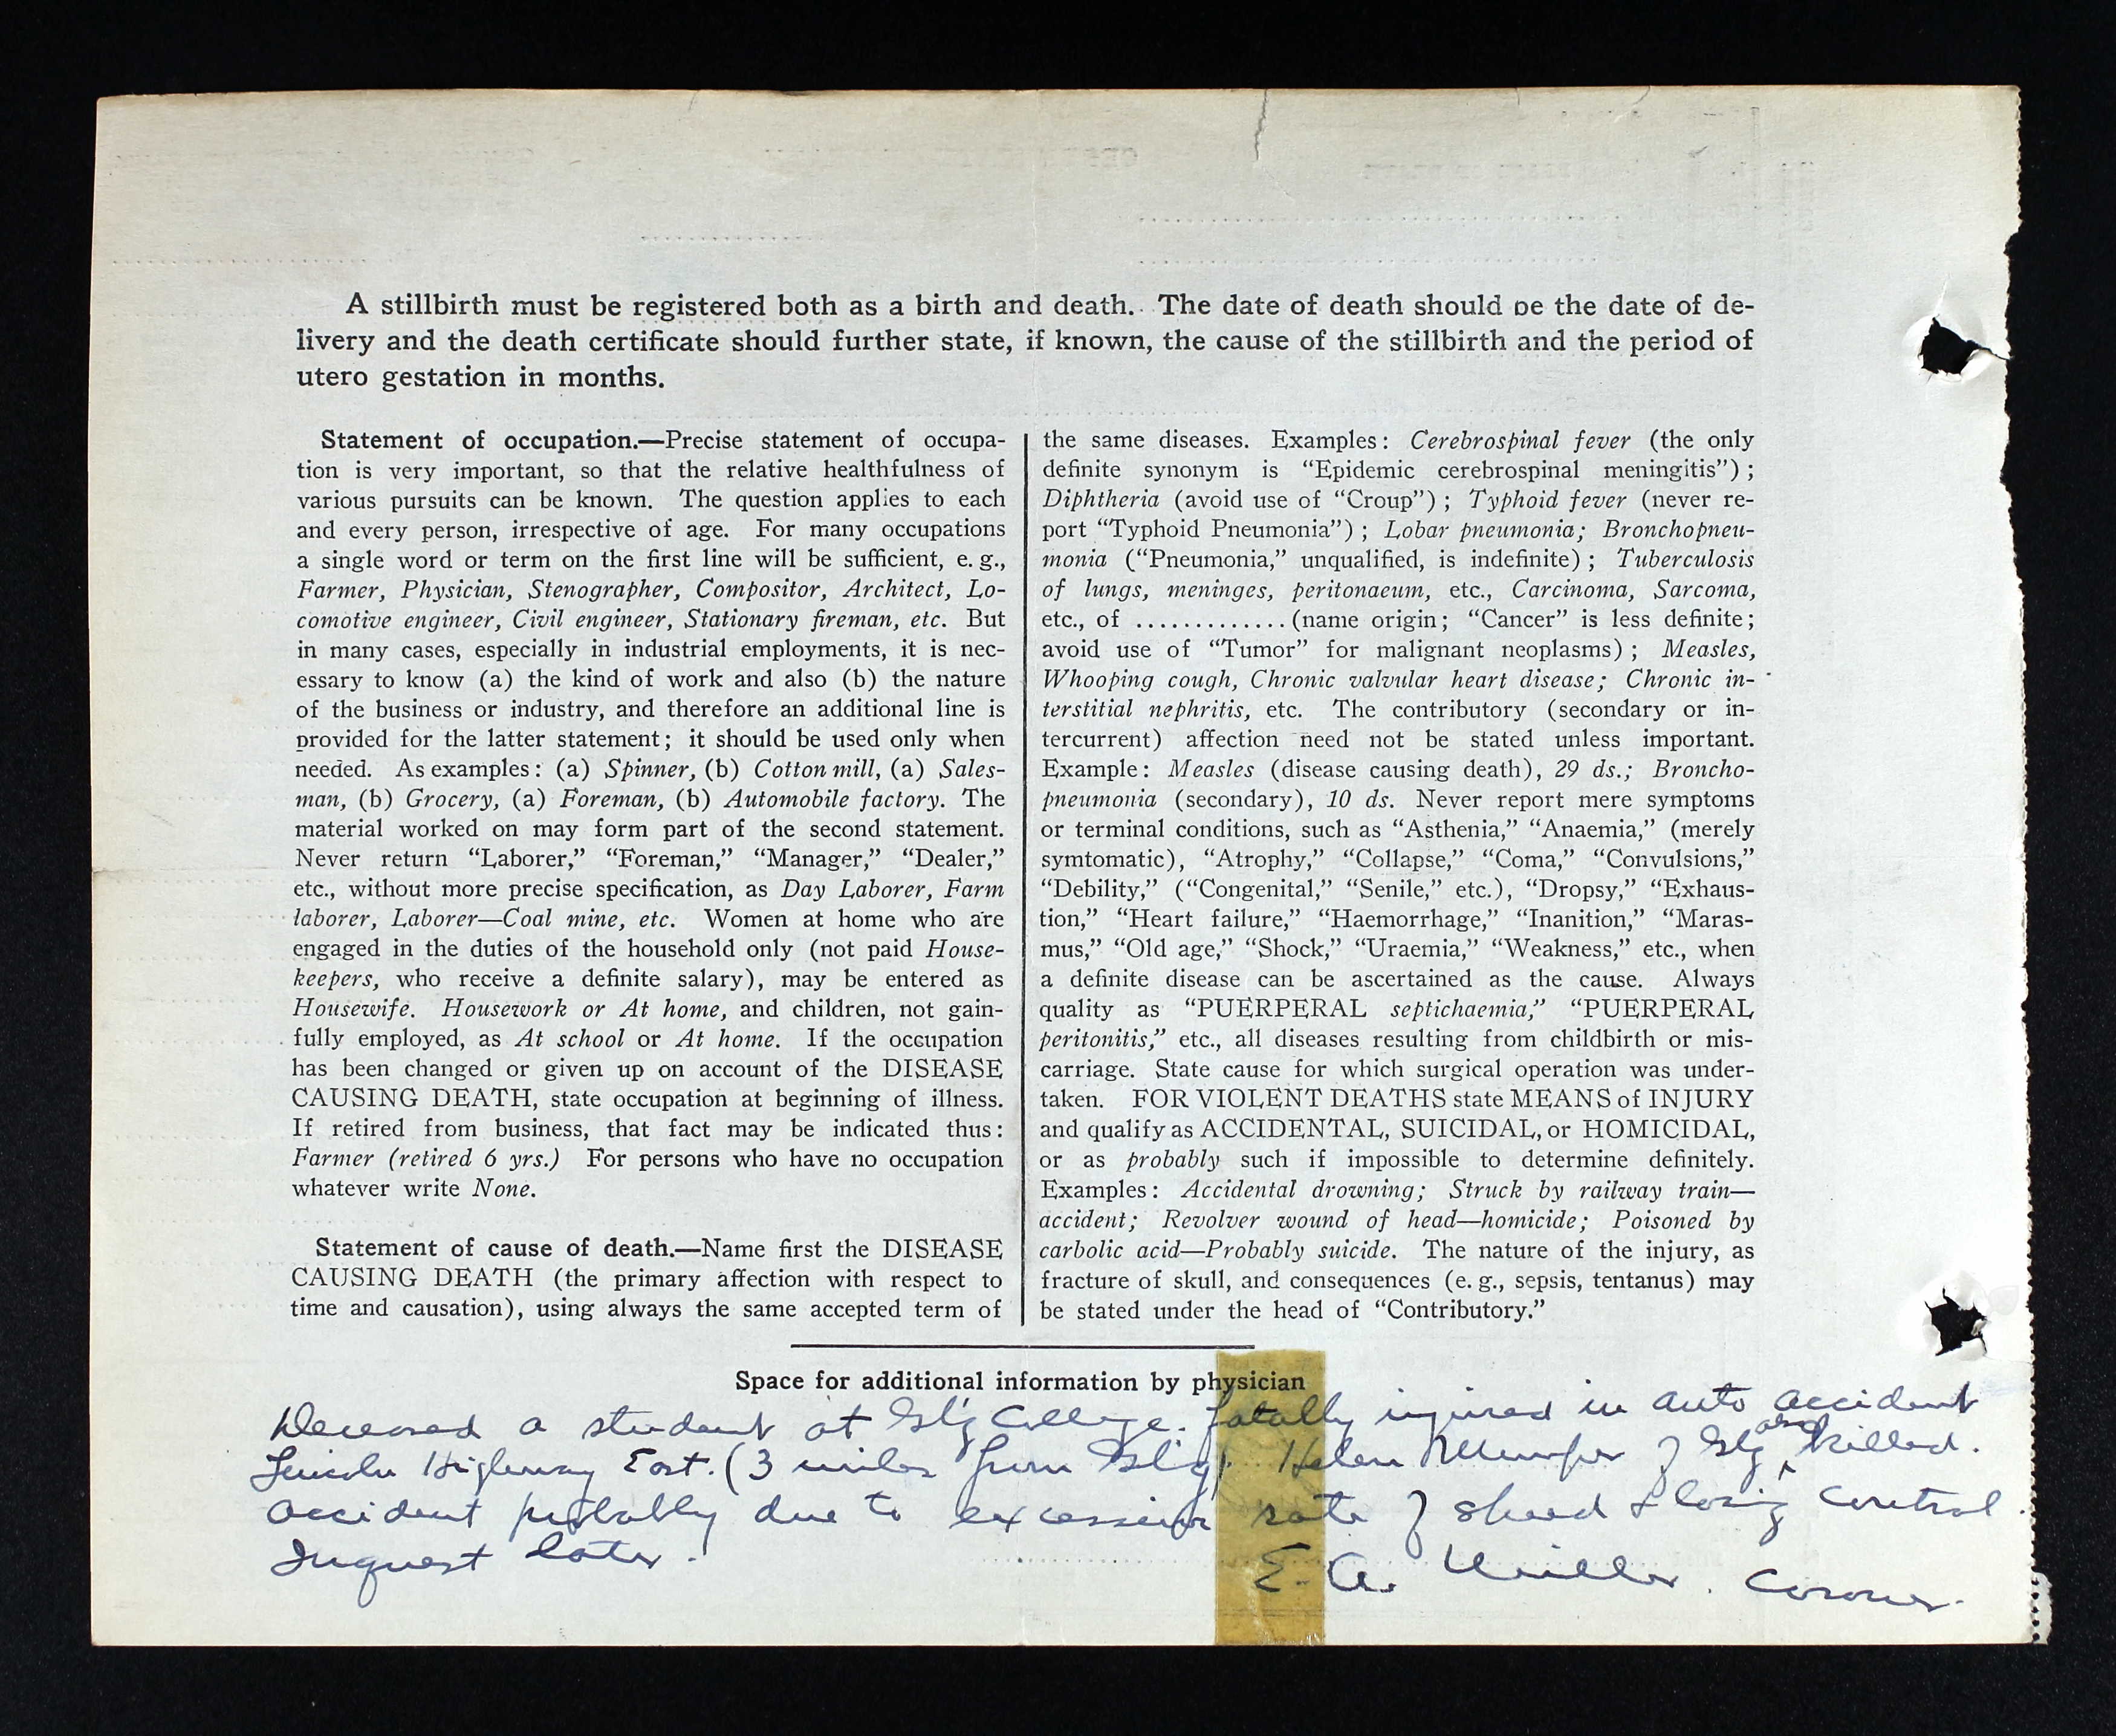 A stillbirth must be registered both as a birth and death. The date of death should be the date of de-
livery and the death certificate should further state, if known, the cause of the stillbirth and the period of
utero gestation in months.
Statement of occupation.—Precise statement of occupa-
tion is very important, so that the relative healthfulness of
various pursuits can be known. The question applies to each
and every person, irrespective of age. For many occupations
a single word or term on the first line will be sufficient, e. g.,
Farmer, Physician, Stenographer, Compositor, Architect, Lo-
comotive engineer, Civil engineer, Stationary fireman, etc. But
in many cases, especially in industrial employments, it is nec-
essary to know (a) the kind of work and also (b) the nature
of the business or industry, and therefore an additional line is
provided for the latter statement; it should be used only when
needed. As examples: (a) Spinner, (b) Cotton mill, (a) Sales-
man, (b) Grocery, (a) Foreman, (b) Automobile factory. The
material worked on may form part of the second statement.
Never return “Laborer,” “Foreman,” “Manager,” “Dealer,”
etc., without more precise specification, as Day Laborer, Farm
laborer, Laborer—Coal mine, etc. Women at home who are
engaged in the duties of the household only (not paid House-
keepers, who receive a definite salary), may be entered as
Housewife. Housework or At home, and children, not gain-
fully employed, as At school or At home. If the occupation
has been changed or given up on account of the DISEASE
CAUSING DEATH, state occupation at beginning of illness.
If retired from business, that fact may be indicated thus:
Farmer (retired 6 yrs.) For persons who have no occupation
whatever write None.
Statement of cause of death.—Name first the DISEASE
CAUSING DEATH (the primary affection with respect to
time and causation), using always the same accepted term of
the same diseases. Examples: Cerebrospinal fever (the only
definite synonym is “Epidemic cerebrospinal meningitis”);
Diphtheria (avoid use of “Croup”); Typhoid fever (never re-
port “Typhoid Pneumonia”); Lobar pneumonia; Bronchopneu-
monia (“Pneumonia,” unqualified, is indefinite); Tuberculosis
of lungs, meninges, peritonaeum, etc., Carcinoma, Sarcoma,
etc., of .............(name origin; “Cancer” is less definite;
avoid use of “Tumor” for malignant neoplasms); Measles,
Whooping cough, Chronic valvular heart disease; Chronic in-
terstitial nephritis, etc. The contributory (secondary or in-
tercurrent) affection need not be stated unless important.
Example: Measles (disease causing death), 29 ds.; Broncho-
pneumonia (secondary), 10 ds. Never report mere symptoms
or terminal conditions, such as “Asthenia,” “Anaemia,” (merely
symtomatic), “Atrophy,” “Collapse,” “Coma,” “Convulsions,”
“Debility,” (“Congenital,” “Senile,” etc.), “Dropsy,” “Exhaus-
tion,” “Heart failure,” “Haemorrhage,” “Inanition,” “Maras-
mus,” “Old age,” “Shock,” “Uraemia,” “Weakness,” etc., when
a definite disease can be ascertained as the cause. Always
quality as “PUERPERAL septichaemia,” “PUERPERAL
peritonitis,” etc., all diseases resulting from childbirth or mis-
carriage. State cause for which surgical operation was under-
taken. FOR VIOLENT DEATHS state MEANS of INJURY
and qualify as ACCIDENTAL, SUICIDAL, or HOMICIDAL,
or as probably such if impossible to determine definitely.
Examples: Accidental drowning; Struck by railway train—
accident; Revolver wound of head—homicide; Poisoned by
carbolic acid—Probably suicide. The nature of the injury, as
fracture of skull, and consequences (e. g., sepsis, tentanus) may
be stated under the head of “Contributory.”
Space for additional information by physician
Deceased a student at Gbg College. fatally injured in auto accident
Lincoln Highway East. (3 miles from Gbg). Helen Mumper of Gbg also killed.
Accident probably due to excessive rate of speed & losing control.
Inquest later.
E. A. Miller. Coroner.